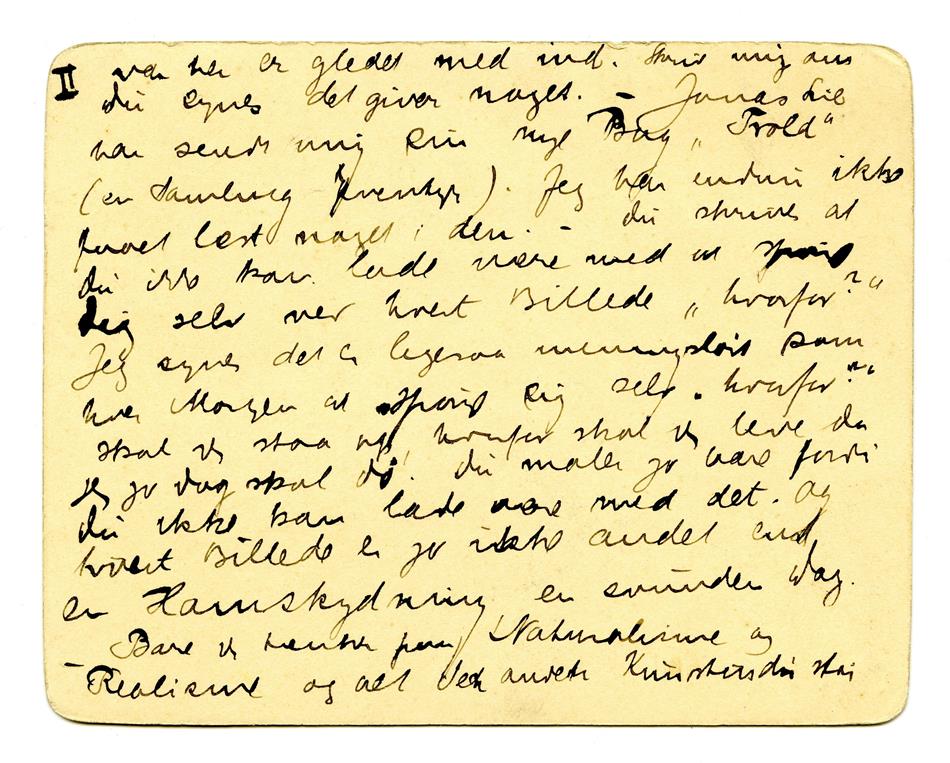 II var her er gledet med ind. Skriv mig om
du synes det giver noget. – Jonas Lie
har sendt mig sin nye Bog „Trold“
(en Samling Eventyr). Jeg har endnu ikke
faaet læst noget i den. – du skriver at
du ikke kan lade være med at spørge
dig selv ved hvert Billede „hvorfor?“
Jeg synes det er ligesaa meningsløst som
hver Morgen at spørge sig selv „hvorfor?“
skal jeg staa op, hvorfor skal jeg leve da
jeg jo dog skal dø! du maler jo bare fordi
du ikke kan lade være med det. Og
hvert Billede er jo ikke andet end
en Hamskydning en svunden Dag.
Bare jeg tænker paa Naturalisme og
– Realisme og alt det andet